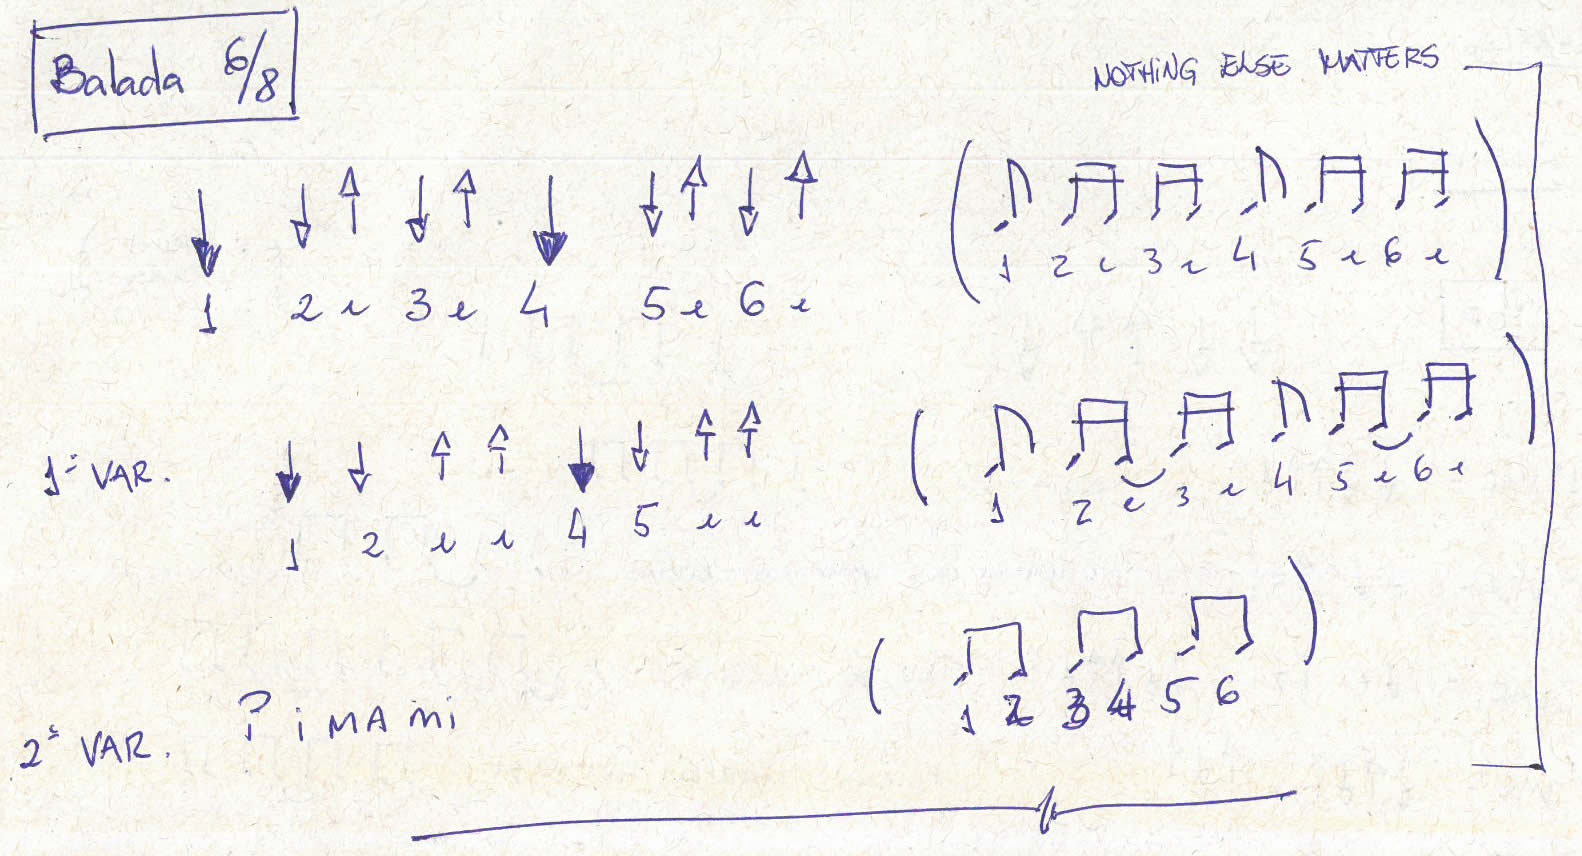 Balada 6/8
NOTHING ELSE MATTERS
1 2 e 3 e 4 5 e 6 e
1 2 e 3 e 4 5 e 6 e
1ª VAR.
1 2 e e 4 5 e e
1 2 e 3 e 4 5 e 6 e
2ª VAR. P i M A M i
1 2 3 4 5 6